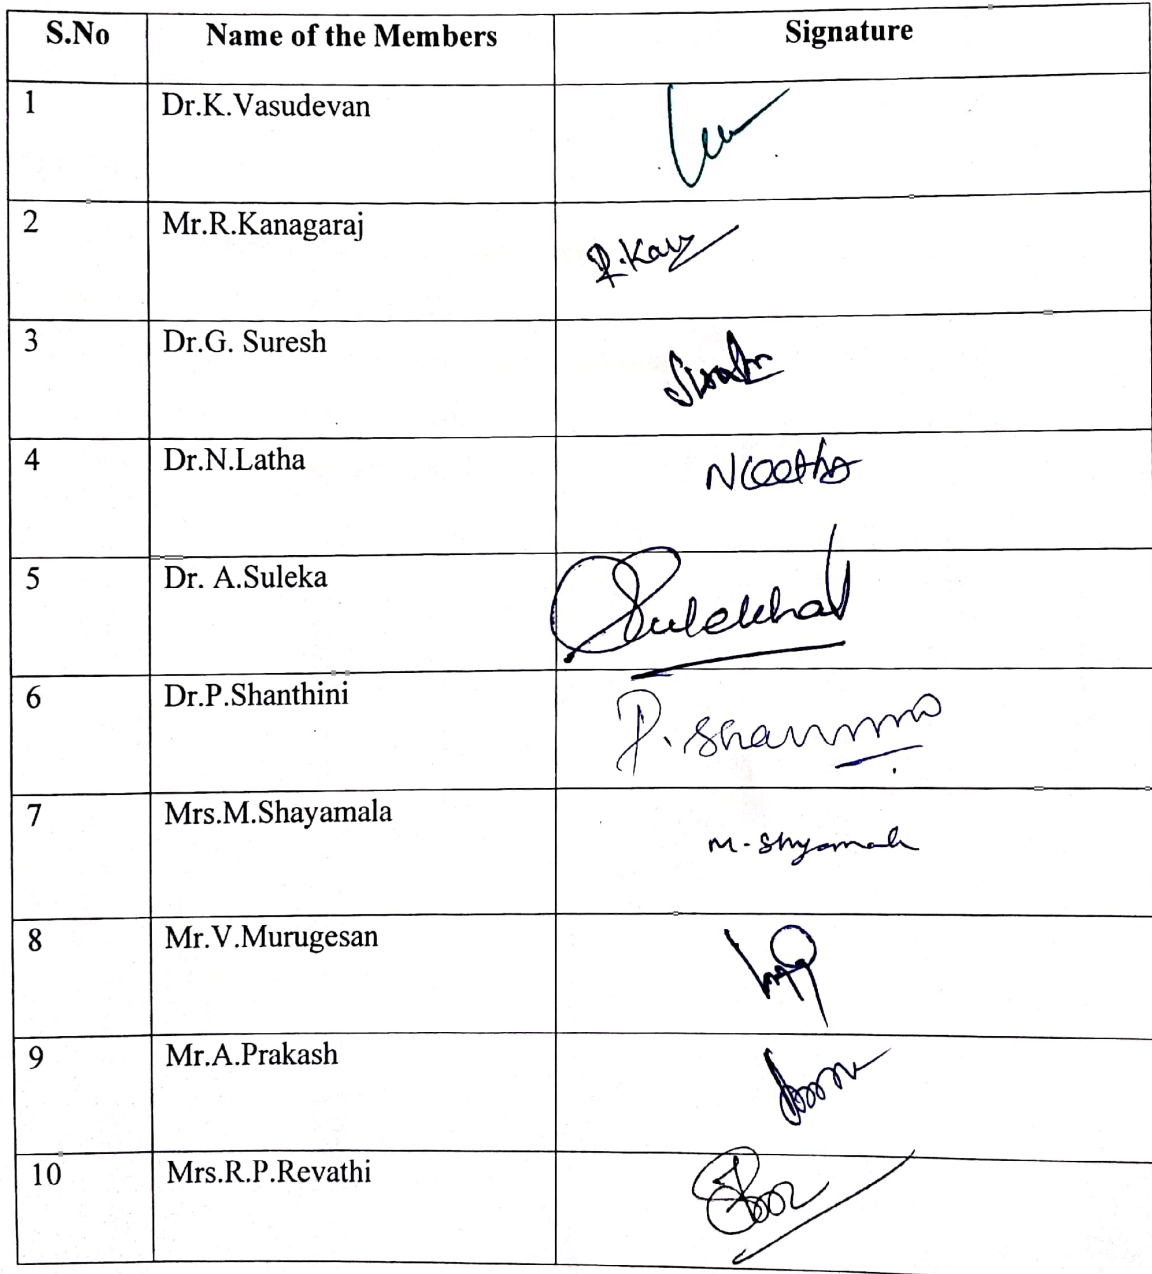 S.No Name of the Members Signature
1 Dr.K.Vasudevan
2 Mr.R.Kanagaraj
3 Dr.G. Suresh
4 Dr.N.Latha
5 Dr. A.Suleka Sulekha
6 Dr.P.Shanthini
7 Mrs.M.Shayamala M. Shyamala
8 Mr.V.Murugesan
9 Mr.A.Prakash
10 Mrs.R.P.Revathi